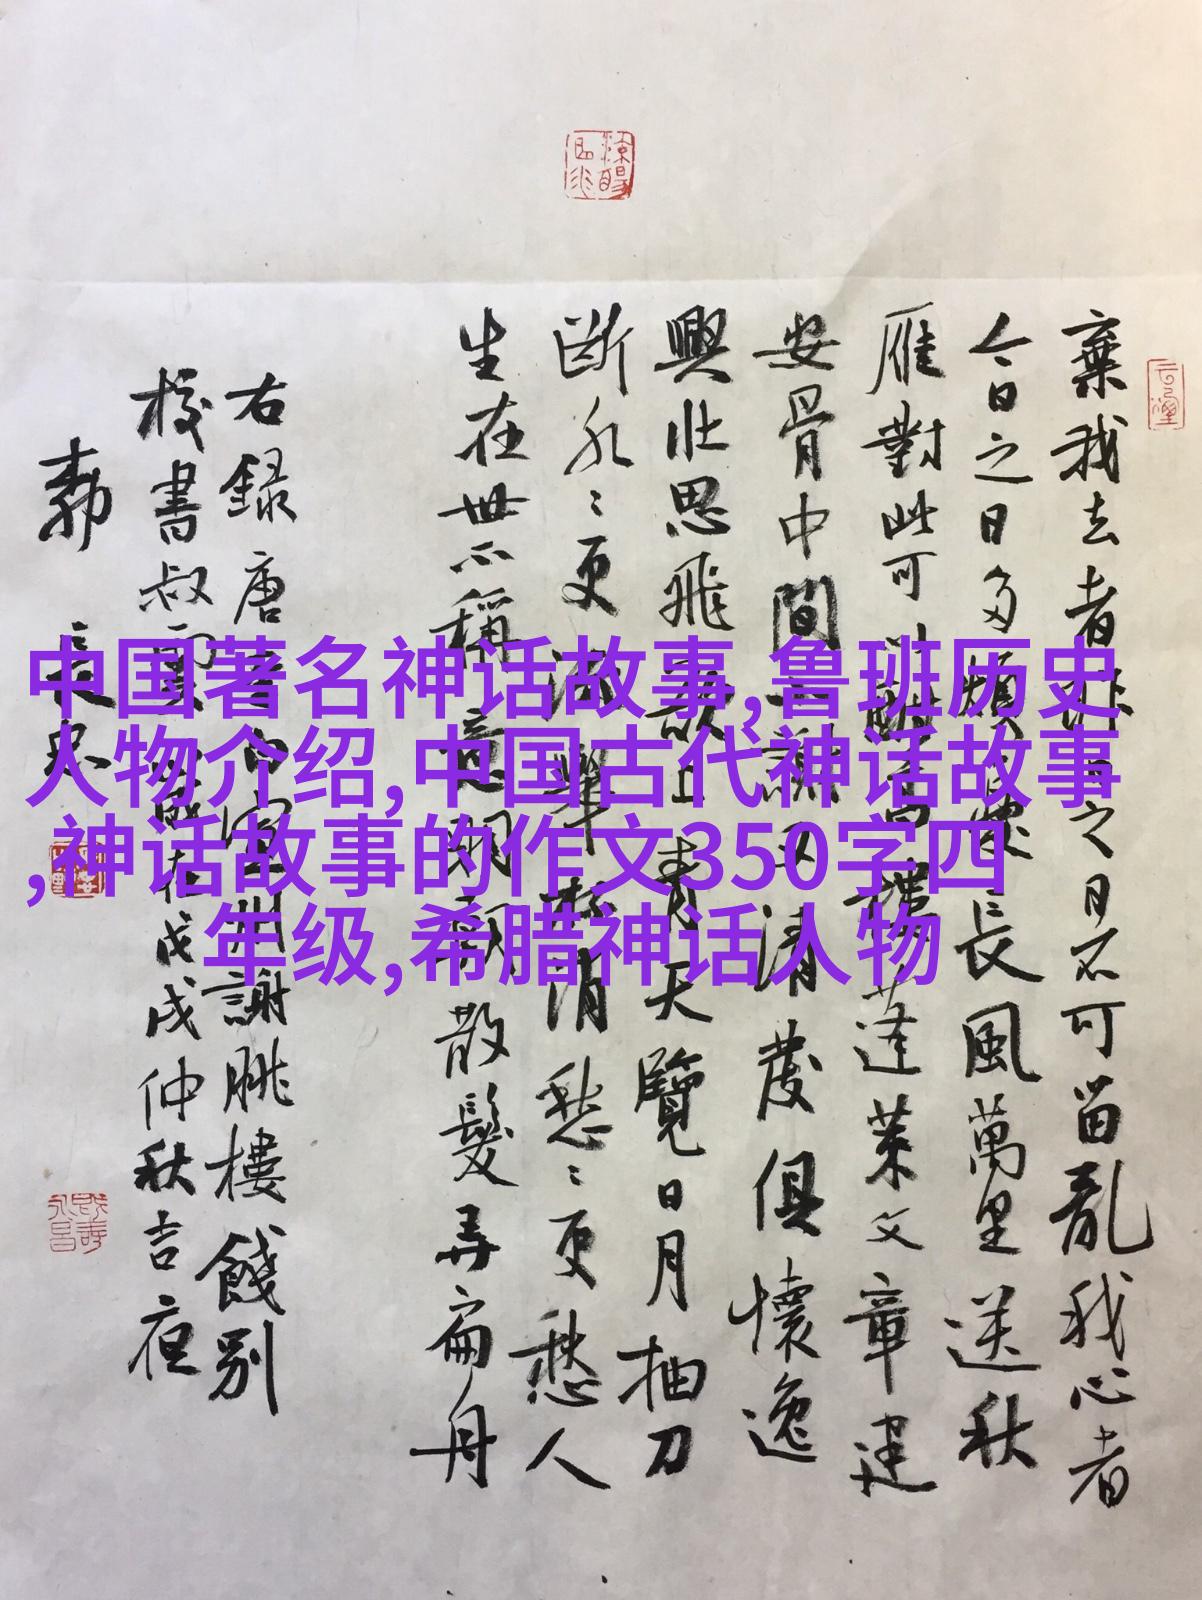 棄我去者昨日之日不可留亂我心者
今日之日多煩憂長風萬里送秋
雁對此可以酣高樓蓬萊文章建
安骨中間小謝又清發俱懷逸
興壯思飛欲上青天覽日月抽刀
斷水々更流舉杯消愁々更愁人
生在世不稱意明朝散髮弄扁舟
右錄唐李白宣州謝朓樓餞別
校書叔雲歲在戊戌仲秋吉夜
中国著名神话故事,鲁班历史
人物介绍,中国古代神话故事
,神话故事的作文350字四
年级,希腊神话人物